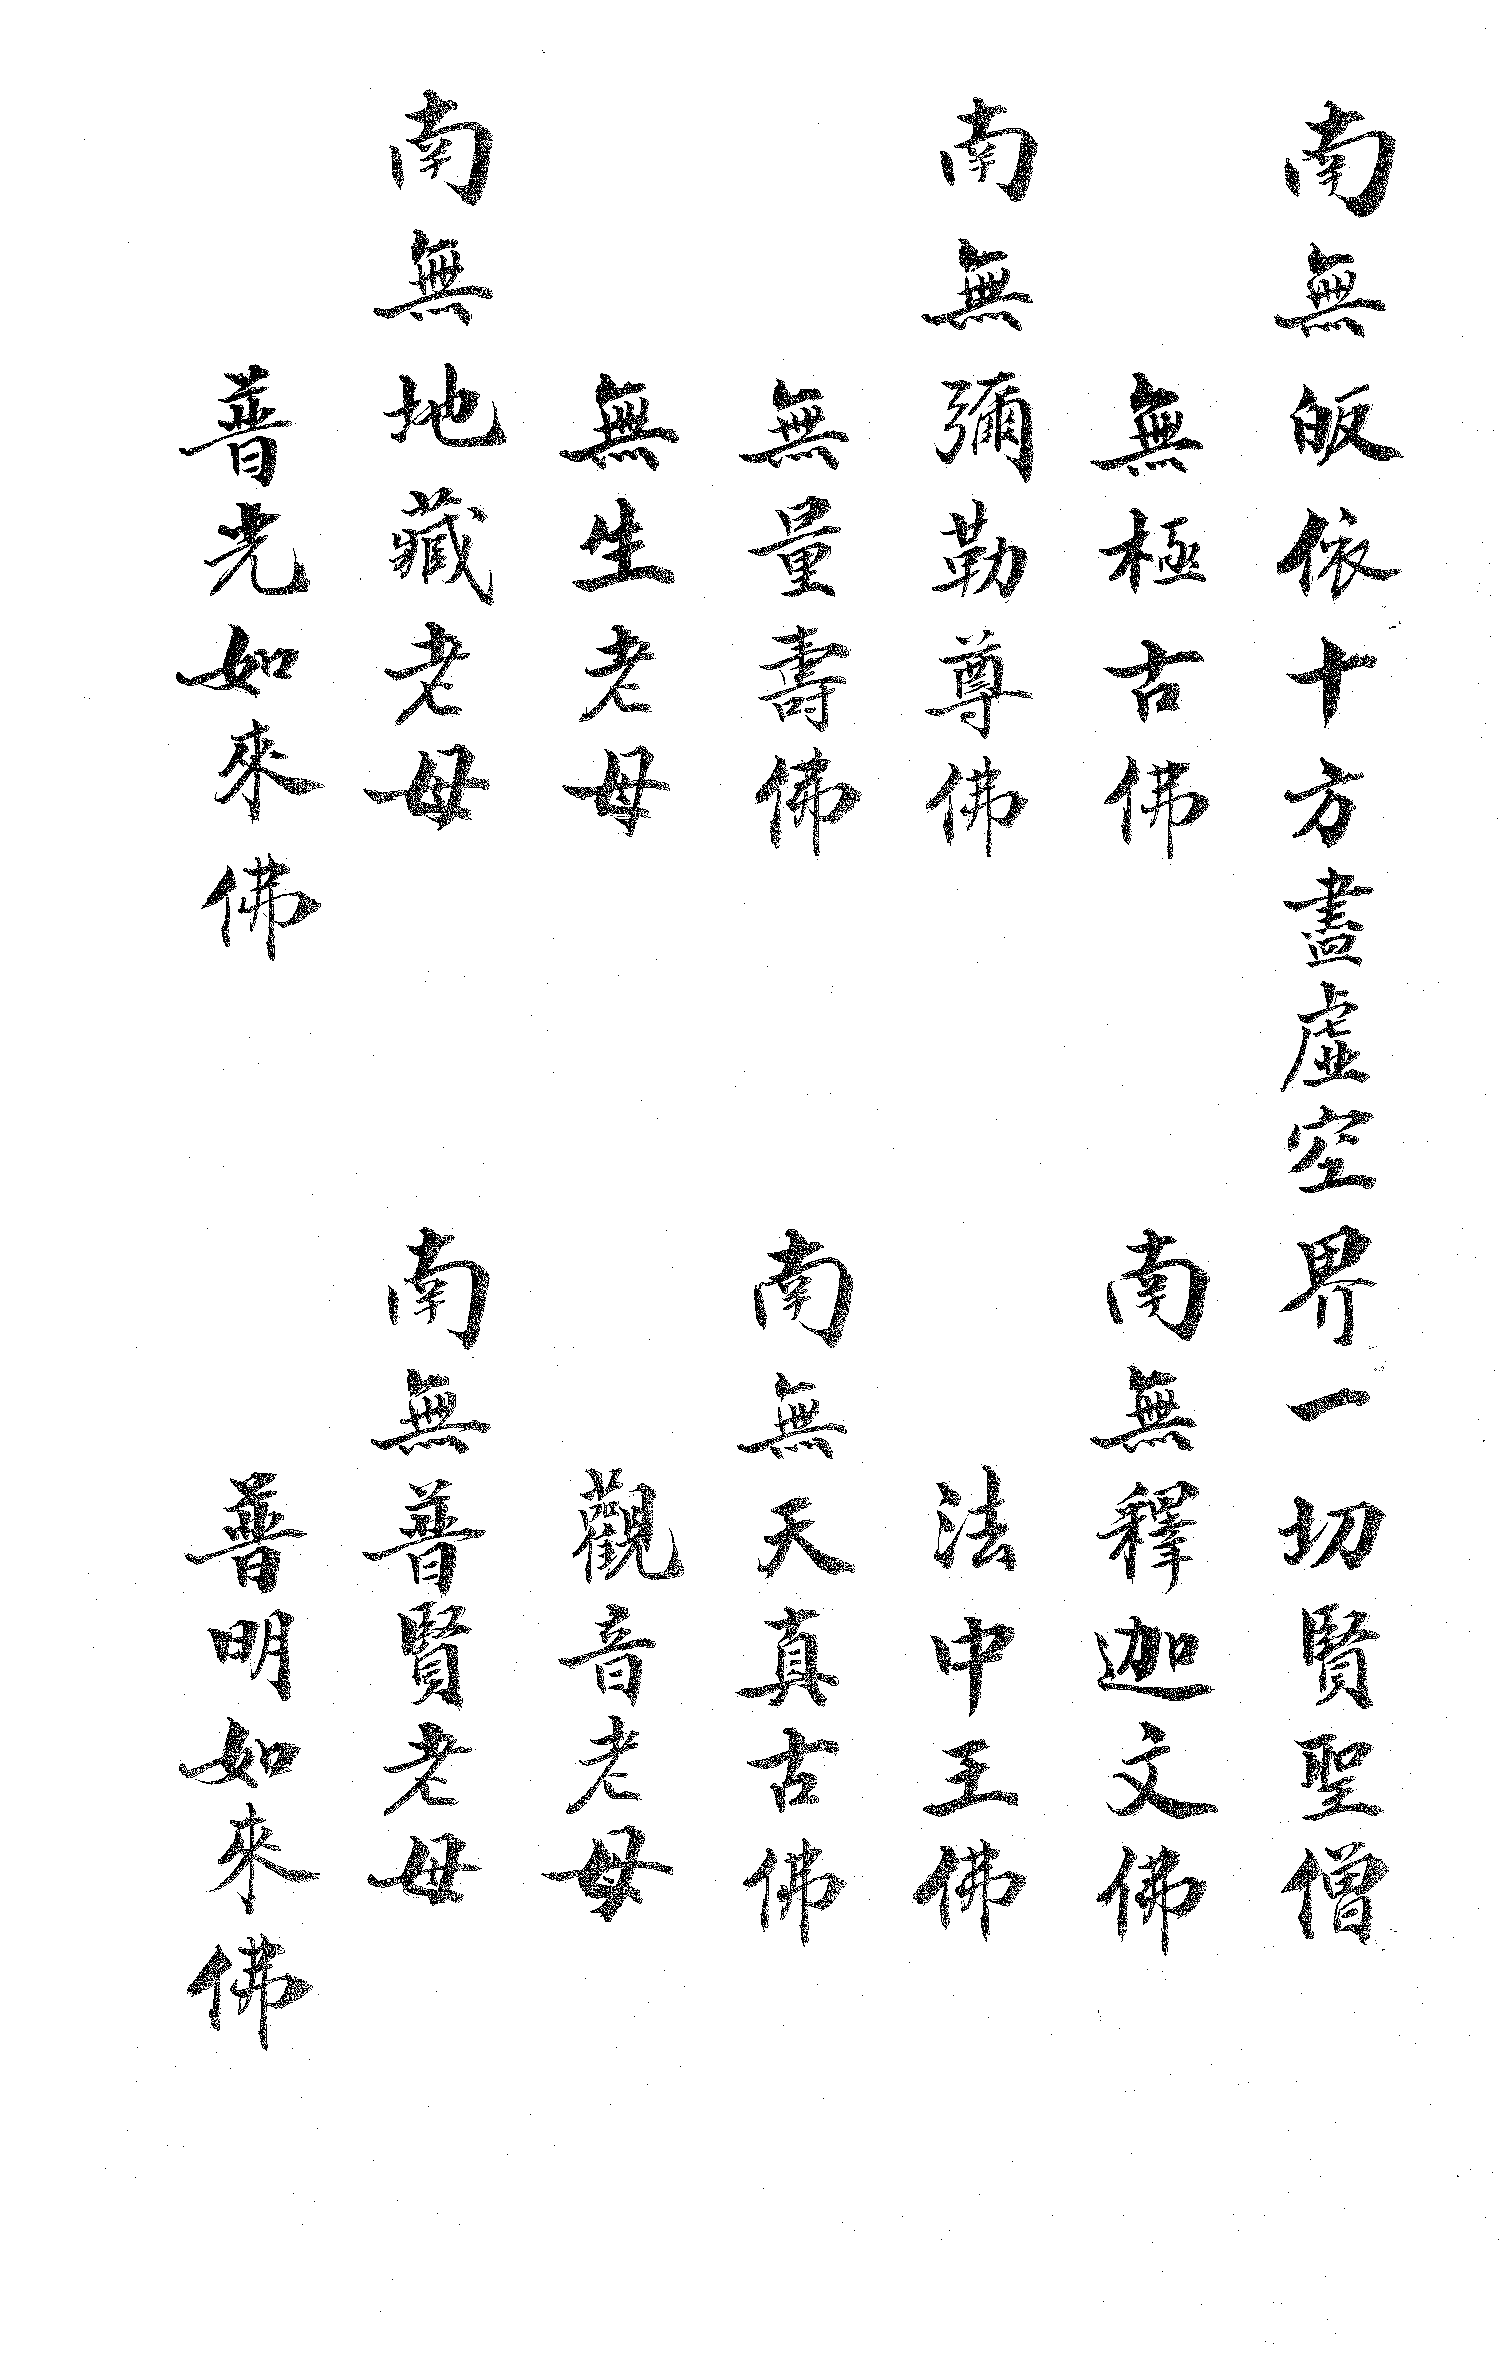 南無皈依十方盡虛空界一切賢聖僧
無極古佛
南無釋迦文佛
南無彌勒尊佛
法中王佛
無量壽佛
南無天真古佛
無生老母
觀音老母
南無地藏老母
南無普賢老母
普光如來佛
普明如來佛